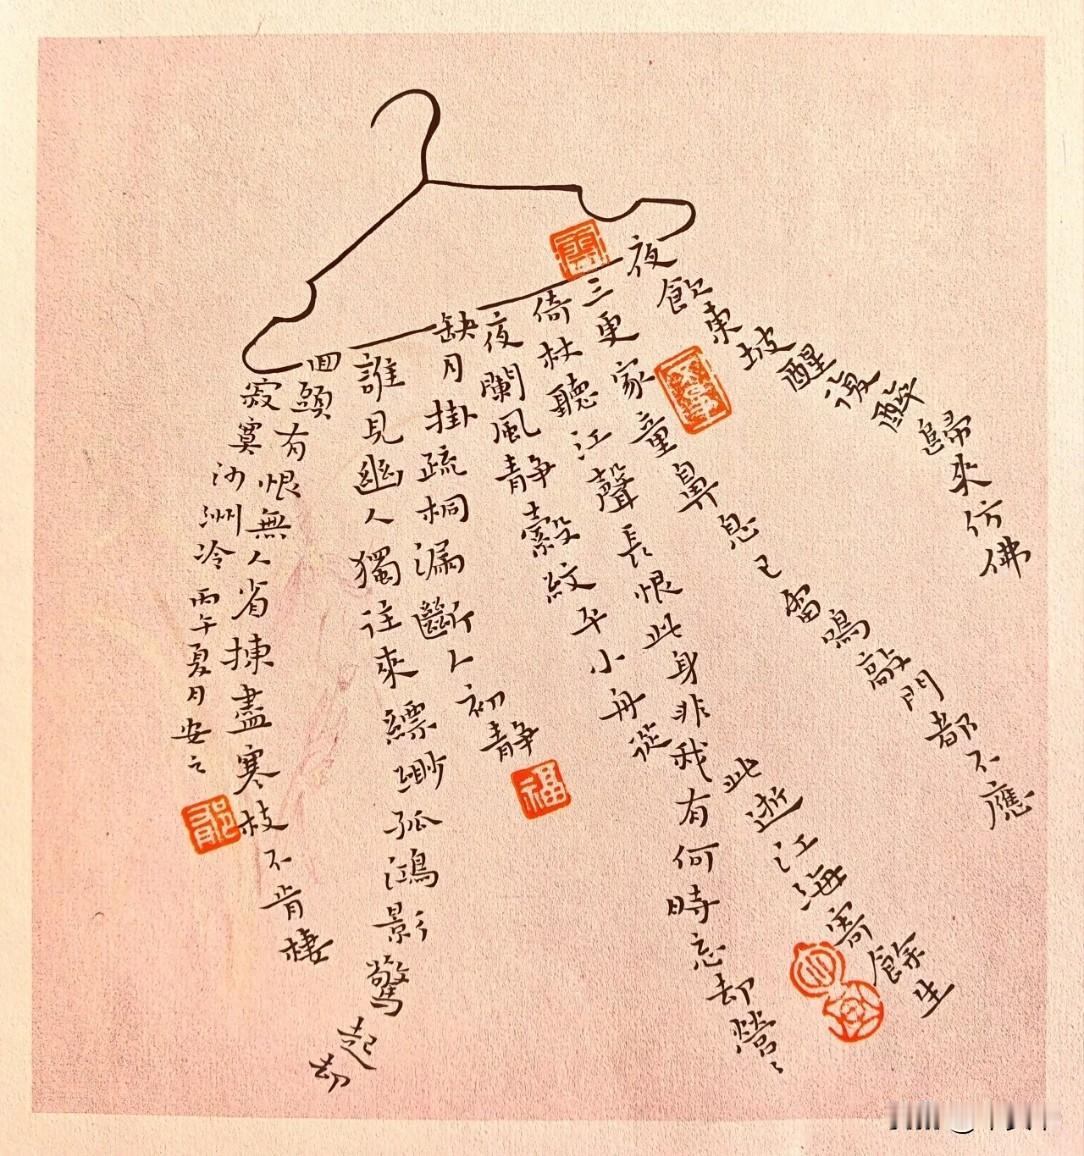 夜飲東坡醒復醉歸來仿佛
三更家童鼻息已雷鳴敲門都不應
倚杖聽江聲長恨此身非我有何時忘却營〻
夜闌風静縠紋平小舟從
此逝江海寄餘生
缺月掛疏桐漏斷人初静
福
誰見幽人獨往來縹緲孤鴻影驚起却
回頭有恨無人省揀盡寒枝不肯棲
寂寞沙洲冷
丙午夏月安之